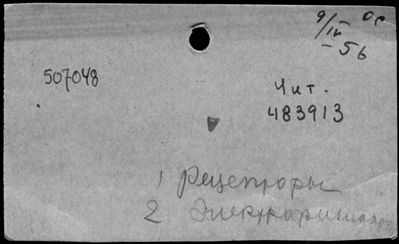 9/IV – 56
507048
Чит.
483913
1 Рецепторы
2 Электрофизиолог